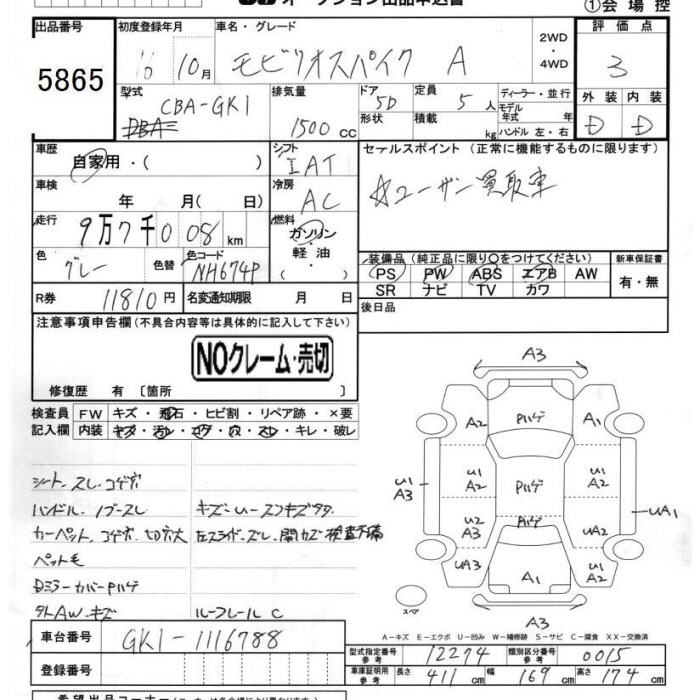 オークション出品申込書
①会場控
出品番号
5865
初度登録年月
16年 10月
車名・グレード
モビリオスパイク A
2WD
・
4WD
評価点
3
型式
CBA-GK1
DBA
排気量
1500 cc
ドア 5D
形状
定員 5 人
積載 kg
ディーラー・並行
モデル年式 年
ハンドル 左・右
外装 内装
D D
車歴
自家用・( )
シフト
IAT
セールスポイント (正常に機能するものに限ります)
☆ユーザー買取車
車検
年 月( 日)
冷房
AC
走行
9万7千008 km
燃料
ガソリン
・
軽油
・( )
色
グレー
色替
色コード
NH674P
装備品 (純正品に限り○をつけてください)
PS PW ABS エアB AW
SR ナビ TV カワ
新車保証書
有・無
R券 11810円
名変通知期限 月 日
後日品
注意事項申告欄 (不具合内容等は具体的に記入して下さい)
NOクレーム・売切
修復歴 有 〔箇所 〕
検査員記入欄
FW キズ・飛石・ヒビ割・リペア跡・×要
内装 キズ・汚レ・コゲ・穴・スレ・キレ・破レ
シート、スレ、コゲ穴
ハンドル、ノブースレ
カーペット、コゲ穴、切穴大
ペット毛
Dミラーカバー Pハゲ
タトAW、キズ
左スライドーズレ、開カズ 検査不備
ルーフレール C
A3
A2 Pハゲ A1
U1
A3
U1
A2
Pハゲ
U1
A2
UA1
U2
A3
Pハゲ
UA2
UA3
A1
U1
A2
A3
スペア
A－キズ E－エクボ U－凹み W－補修跡 S－サビ C－腐食 XX－交換済
車台番号 GK1-1116788
登録番号
型式指定番号 参考 12274
類別区分番号 参考 0015
車庫証明用 参考 長さ 411 cm 幅 169 cm 高さ 174 cm